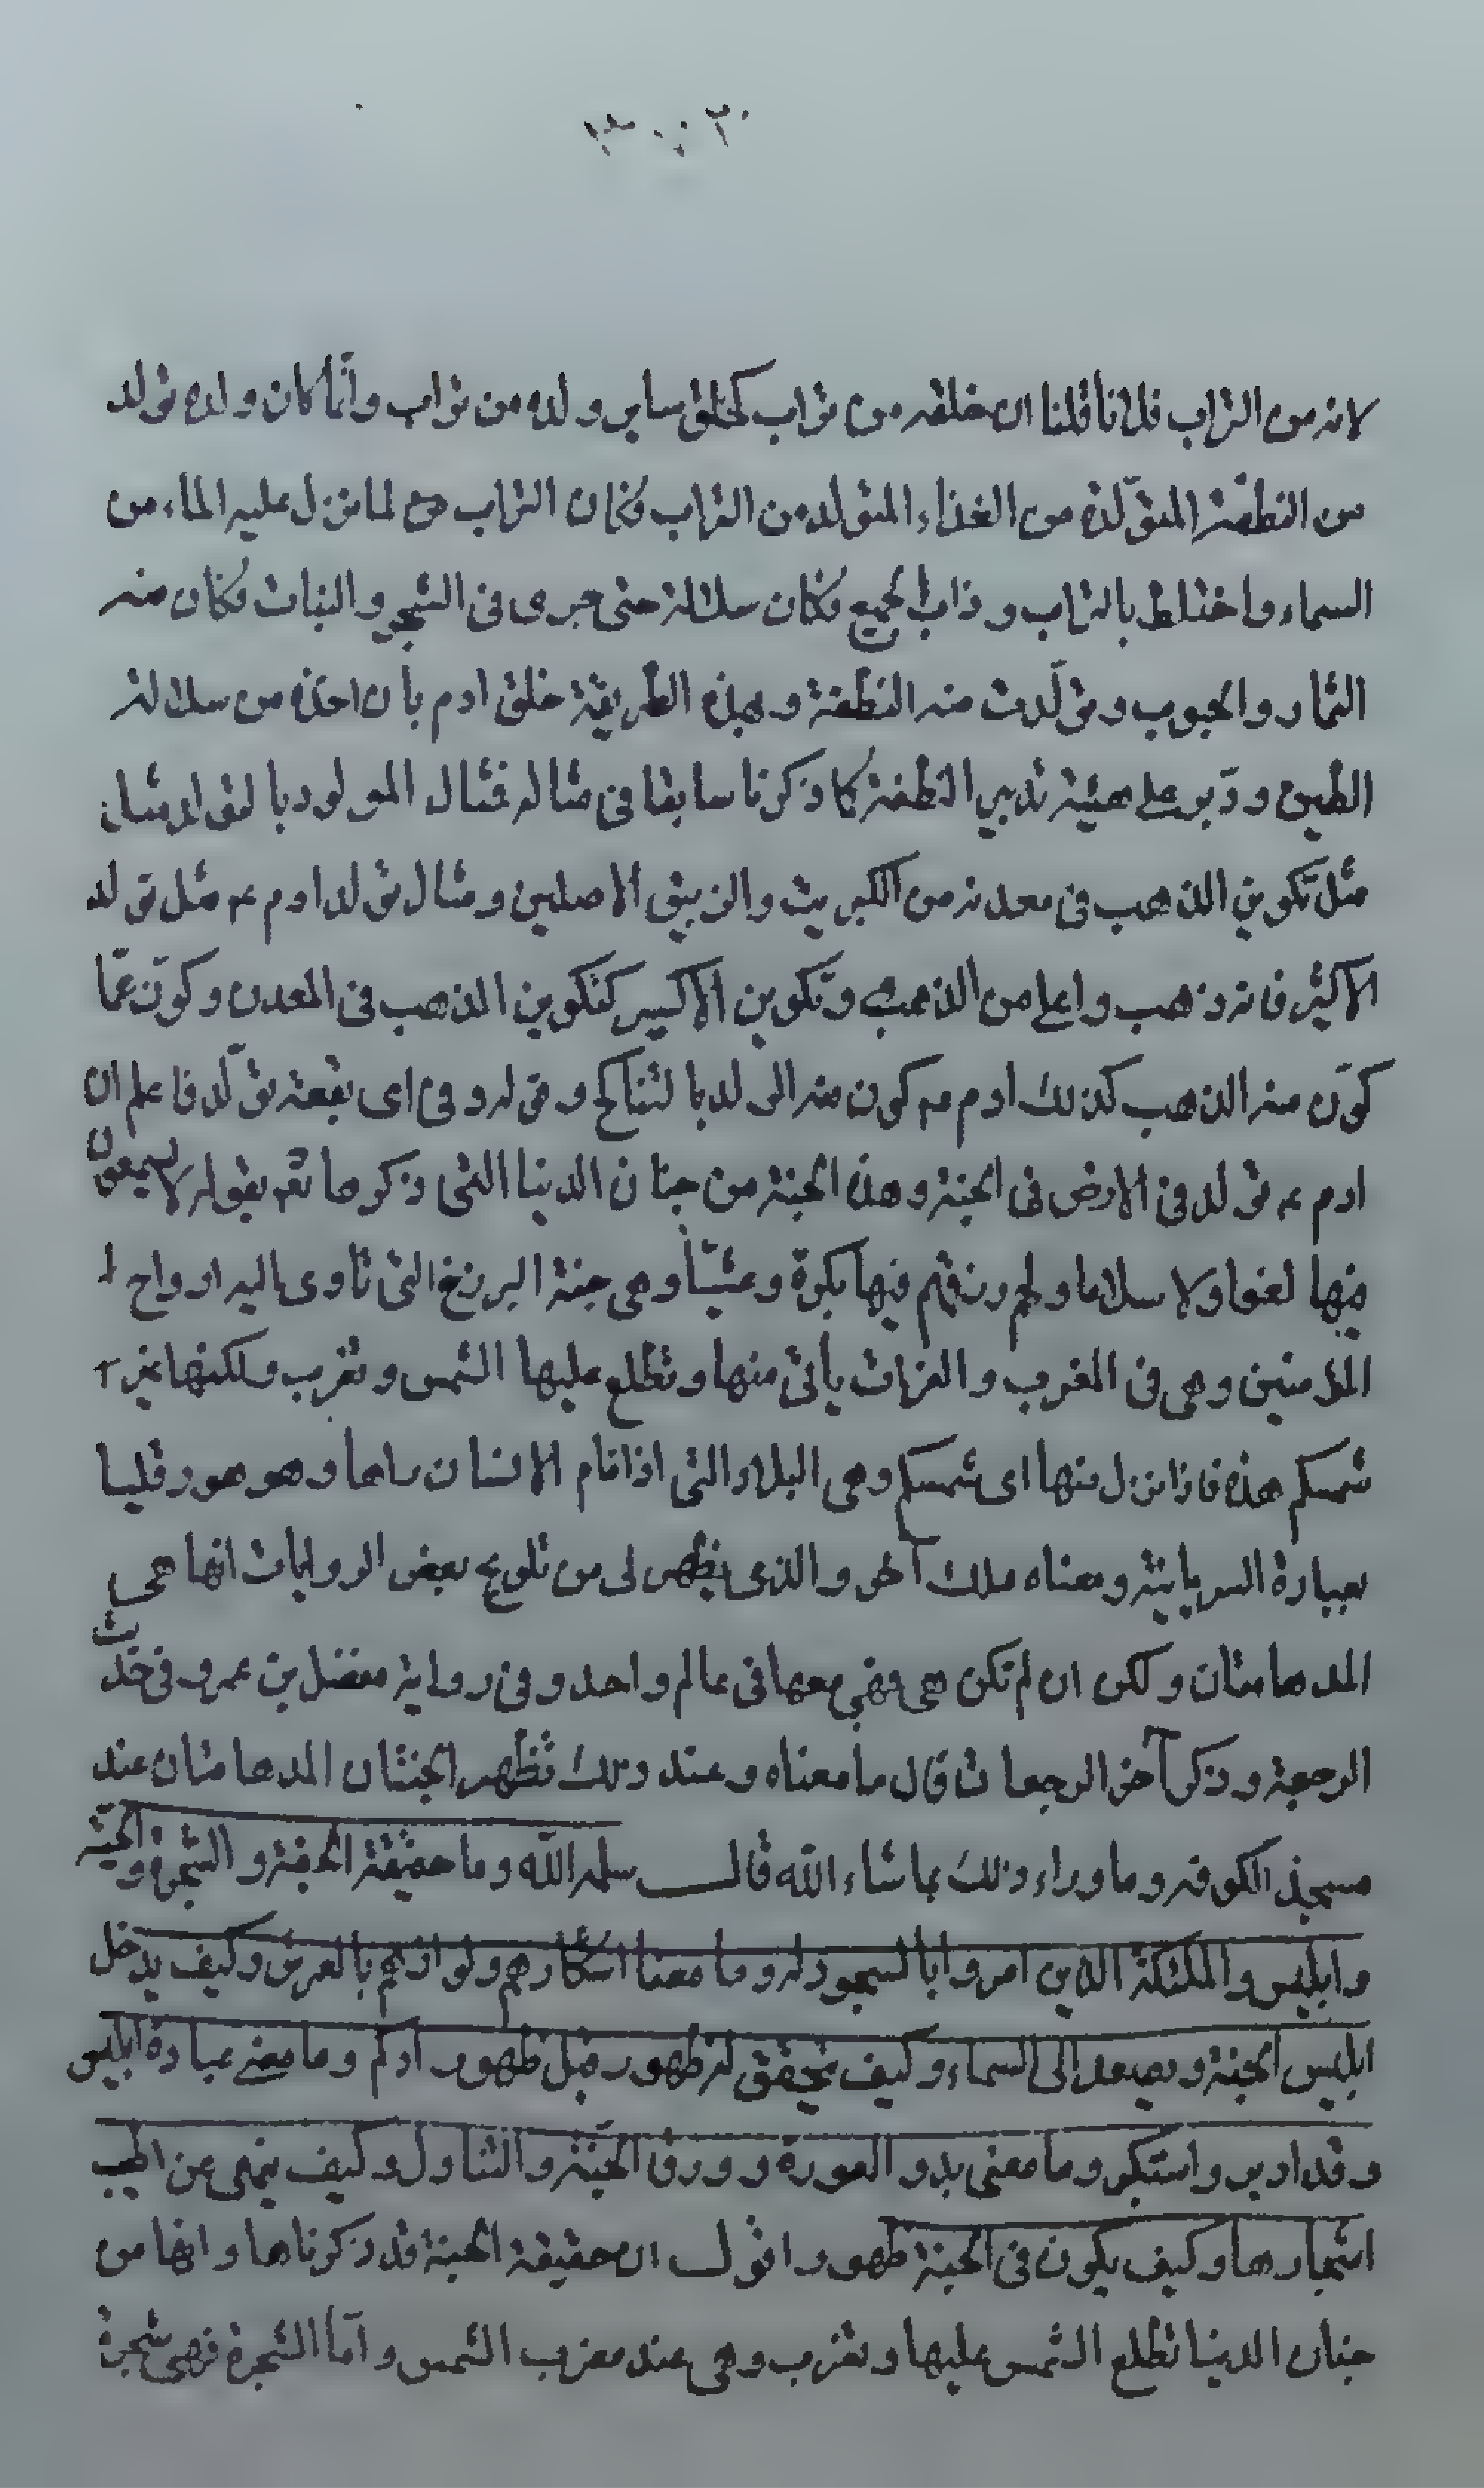 لانه من التراب فلانا قلنا ان خلقه من تراب كخلق ساير ولده من تراب وانّما كان ولده تولد
من النطفة المتولّدة من الغذاء المتولد من التراب فكان التراب ح لما نزل عليه الماء من
السماء واختلط بالتراب وذاب الجميع فكان سلالة حتى جرى فى الشجر والنبات فكان منه
الثمار والحبوب وتولّدت منه النطفة وبهذه الطريقة خلق ادم بان اخذه من سلالة
الطين ودبّر على هيئة تدبير النطفة كما ذكرنا سابقا فى مثاله فمثال المولود بالتوالد مثل
مثل تكوين الذهب فى معدنه من الكبريت والزيبق الاصلين ومثال تولد ادم ع مثل تولد
الاكثير فانه ذهب واعلى من الذهب وتكوين الاكسير كتكوين الذهب فى المعدن وكوّن عمّا
كوّن منه الذهب كذلك ادم ع كون منه الولد بالتناكح وقوله وفى اى بقعة تولّد فاعلم ان
ادم ع تولد فى الارض فى الجنة وهذه الجنة من جنان الدنيا التى ذكرها تعم بقوله لا يسمعون
فيها لغوا ولا سلاما ولهم رزقهم فيها بكرة وعشيّا وهى جنة البرزخ التى تاوى اليه ارواح
المؤمنين وهى فى المغرب والفرات يأتى منها وتطلع عليها الشمس وتغرب ولكنها غير
شمسكم هذه فاذا نزل منها اى شمسكم وهى البلاد التى اذا نام الانسان راها وهو هورقليا
بعبارة السريانية ومعناه ملك آخر والذى يظهر لى من تلويح بعض الروايات انها هى
المدهامتان ولكن ان لم تكن هى فهى معها فى عالم واحد وفى رواية مفضل بن عمر وفى حديث
الرجعة وذكر آخر الرجعات قال ما معناه وعند ذلك تظهر الجنتان المدهامتان عند
مسجد الكوفة وما وراء ذلك بما شاء الله قال سلمه الله وما حقيقة الجنة والشجرة والحيّة
وابليس والملئكة الذين امروا بالسجود له وما معنا استكبارهم ولواذهم بالعرش وكيف يدخل
ابليس الجنة ويصعد الى السماء وكيف يتحقق له ظهور قبل ظهور ادم وما معنى عبادة ابليس
وقد ادبر واستكبر وما معنى بدو العورة وورق الجنّة والتناول وكيف ينهى عن اطيب
اشجارها وكيف يكون فى الجنة ظهور اقول ان حقيقة الجنة قد ذكرناها وانها من
جنان الدنيا تطلع الشمس عليها وتغرب وهى عند مغرب الشمس وامّا الشجرة فهى شجرة